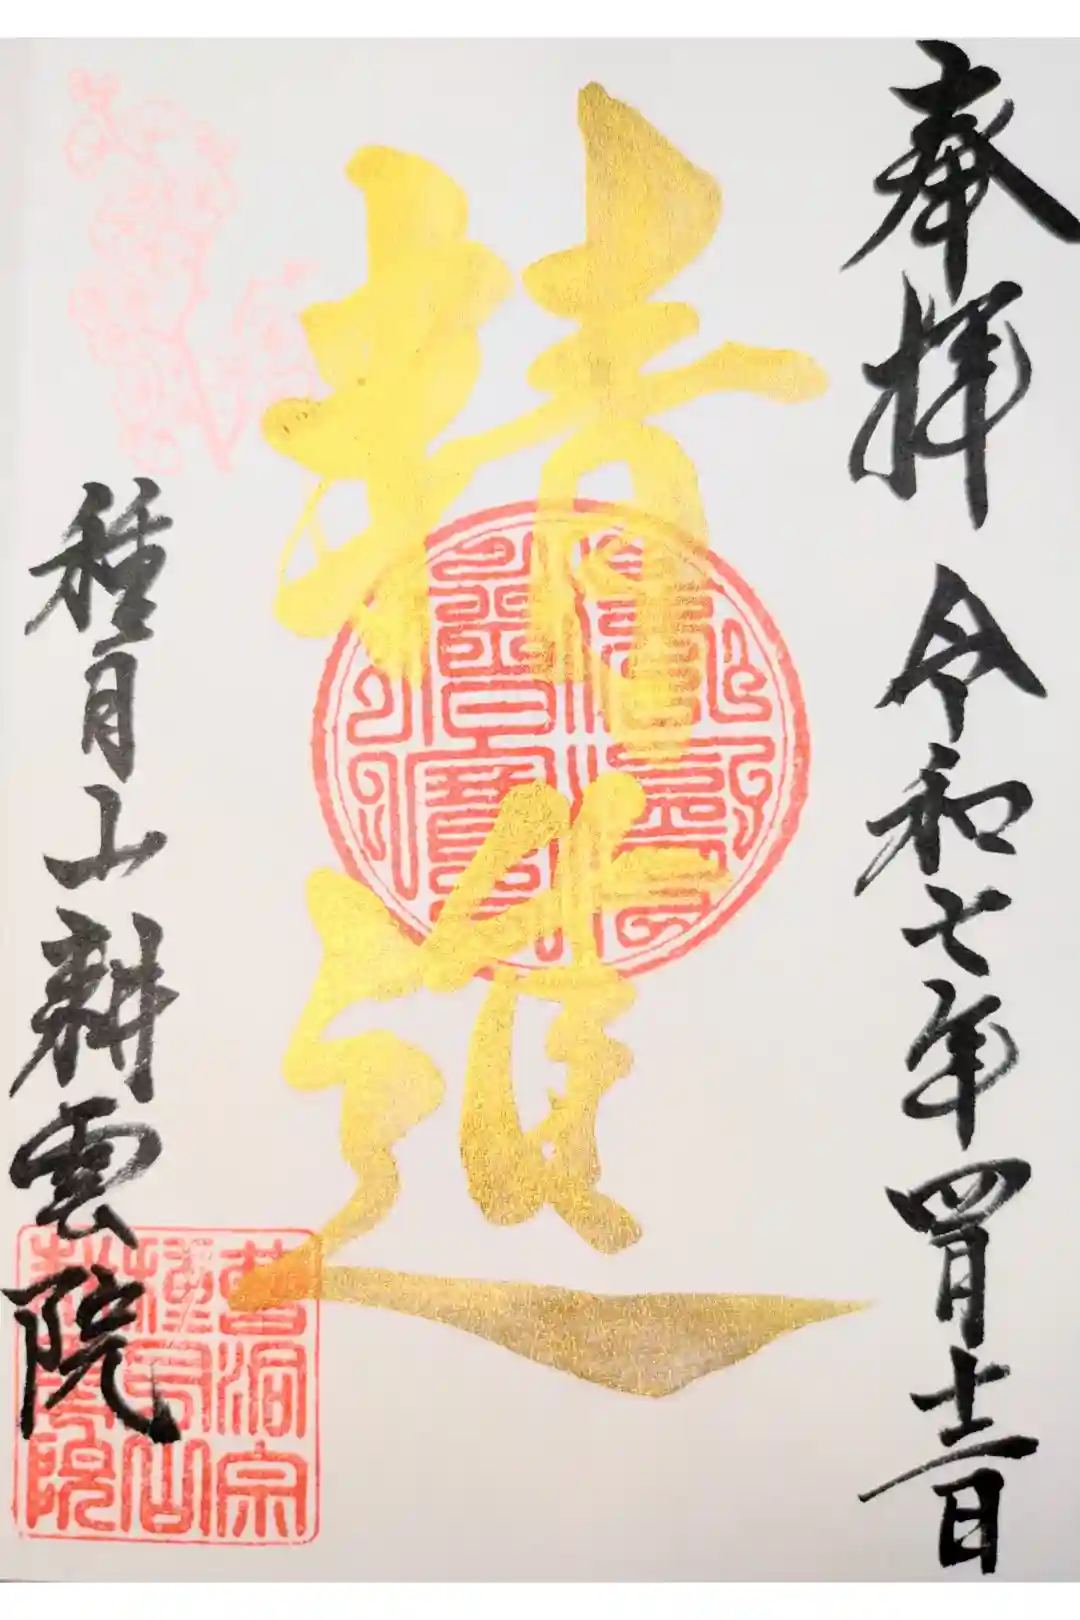 奉拝 令和七年四月十二日
精進
種月山耕雲院
曹洞宗
種月山
耕雲院